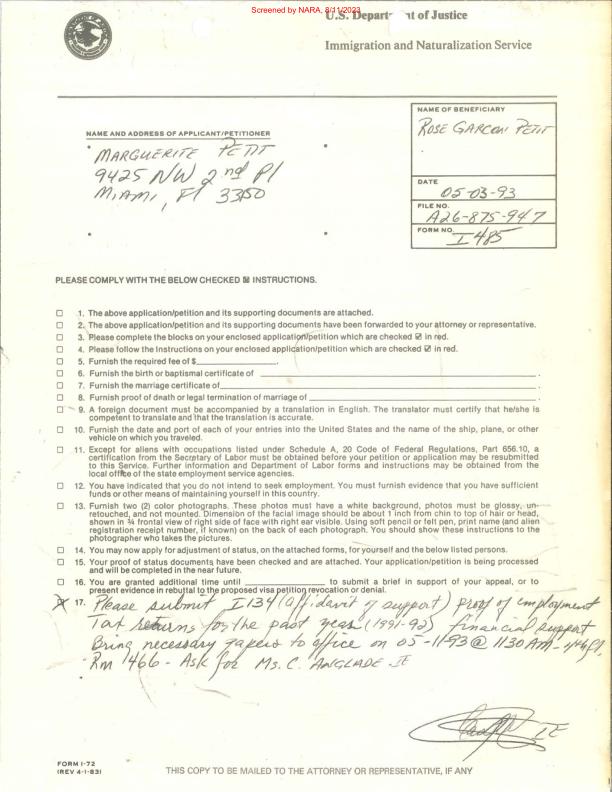 Screened by NARA, 8/11/2023
U.S. Department of Justice
Immigration and Naturalization Service
NAME AND ADDRESS OF APPLICANT/PETITIONER
MARGUERITE PETIT
9425 NW 2nd Pl
MIAMI, Fl 33150
NAME OF BENEFICIARY
ROSE GARCON PETIT
DATE
05-03-93
FILE NO.
A26-875-947
FORM NO.
I 485
PLEASE COMPLY WITH THE BELOW CHECKED ☒ INSTRUCTIONS.
☐ 1. The above application/petition and its supporting documents are attached.
☐ 2. The above application/petition and its supporting documents have been forwarded to your attorney or representative.
☐ 3. Please complete the blocks on your enclosed application/petition which are checked ☑ in red.
☐ 4. Please follow the Instructions on your enclosed application/petition which are checked ☑ in red.
☐ 5. Furnish the required fee of $____________.
☐ 6. Furnish the birth or baptismal certificate of ____________.
☐ 7. Furnish the marriage certificate of ____________.
☐ 8. Furnish proof of death or legal termination of marriage of ____________.
☐ 9. A foreign document must be accompanied by a translation in English. The translator must certify that he/she is
competent to translate and that the translation is accurate.
☐ 10. Furnish the date and port of each of your entries into the United States and the name of the ship, plane, or other
vehicle on which you traveled.
☐ 11. Except for aliens with occupations listed under Schedule A, 20 Code of Federal Regulations, Part 656.10, a
certification from the Secretary of Labor must be obtained before your petition or application may be resubmitted
to this Service. Further information and Department of Labor forms and instructions may be obtained from the
local office of the state employment service agencies.
☐ 12. You have indicated that you do not intend to seek employment. You must furnish evidence that you have sufficient
funds or other means of maintaining yourself in this country.
☐ 13. Furnish two (2) color photographs. These photos must have a white background, photos must be glossy, un-
retouched, and not mounted. Dimension of the facial image should be about 1 inch from chin to top of hair or head,
shown in ¾ frontal view of right side of face with right ear visible. Using soft pencil or felt pen, print name (and alien
registration receipt number, if known) on the back of each photograph. You should show these instructions to the
photographer who takes the pictures.
☐ 14. You may now apply for adjustment of status, on the attached forms, for yourself and the below listed persons.
☐ 15. Your proof of status documents have been checked and are attached. Your application/petition is being processed
and will be completed in the near future.
☐ 16. You are granted additional time until ____________ to submit a brief in support of your appeal, or to
present evidence in rebuttal to the proposed visa petition revocation or denial.
☒ 17. Please submit I134 (affidavit of support) proof of employment
Tax returns for the past year (1991-92) financial support
Bring necessary papers to office on 05-11-93 @ 1130 AM - 4th fl,
Rm 466 - Ask for Ms. C. ANGLADE IE
IE
FORM I-72
(REV 4-1-83)
THIS COPY TO BE MAILED TO THE ATTORNEY OR REPRESENTATIVE, IF ANY